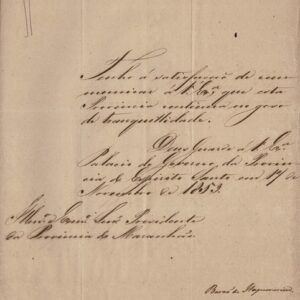 Tenho á satisfação de com-
municar á V. Exª, que esta
Provincia continúa em gozo
de tranquilidade.
Deos Guarde a V. Exª
Palacio do Governo da Provin-
cia do Espirito Santo em 17 de
Novembro de 1853.
Illmo. e Exmo. Senr. Presidente
da Provincia do Maranhão.
Barão de Itapemirim